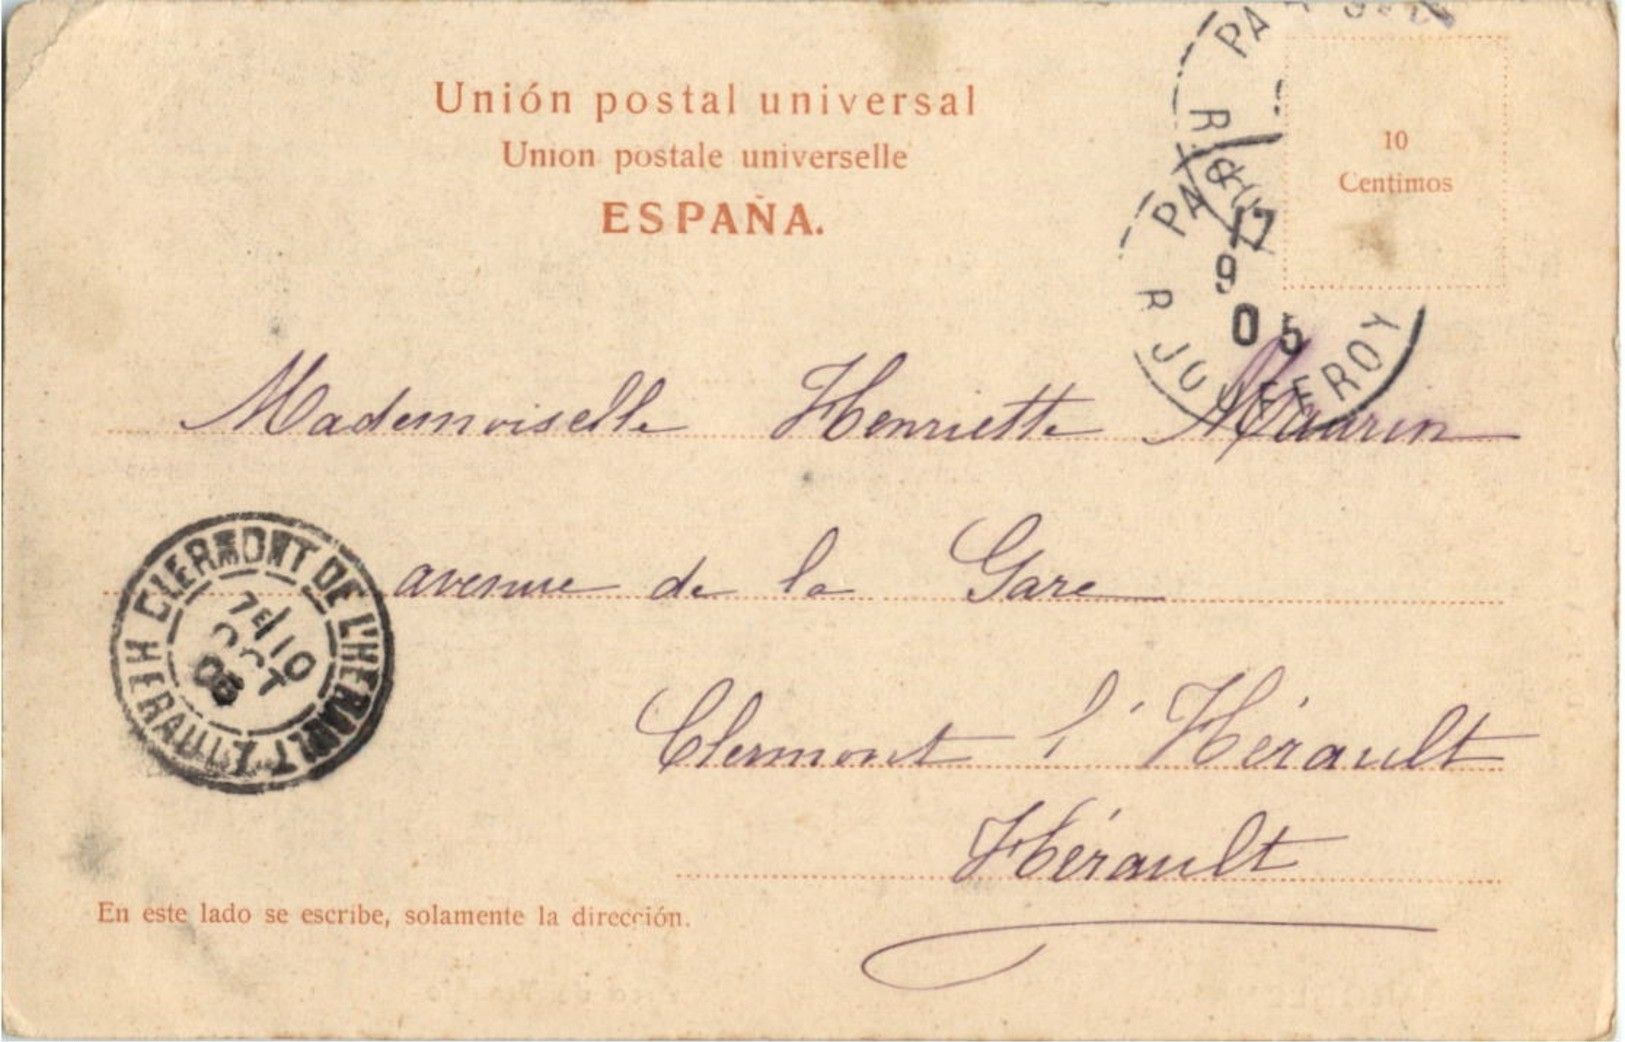 Unión postal universal
Union postale universelle
ESPAÑA.
10
Centimos
PA
R
PA
17
9
05
R JOUFFROY
Mademoiselle Henriette Maurin
avenue de la Gare
Clermont l'Hérault
Hérault
CLERMONT DE L'HERAULT
HERAULT
7E 10
OCT
05
En este lado se escribe, solamente la dirección.